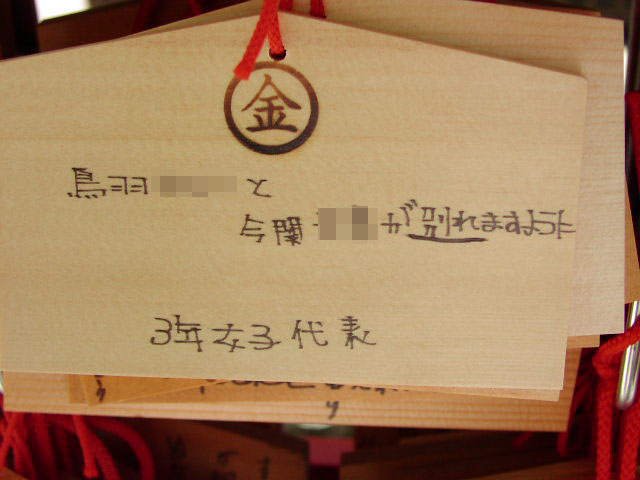 金
鳥羽 と
今関 が別れますように
3年女子代表